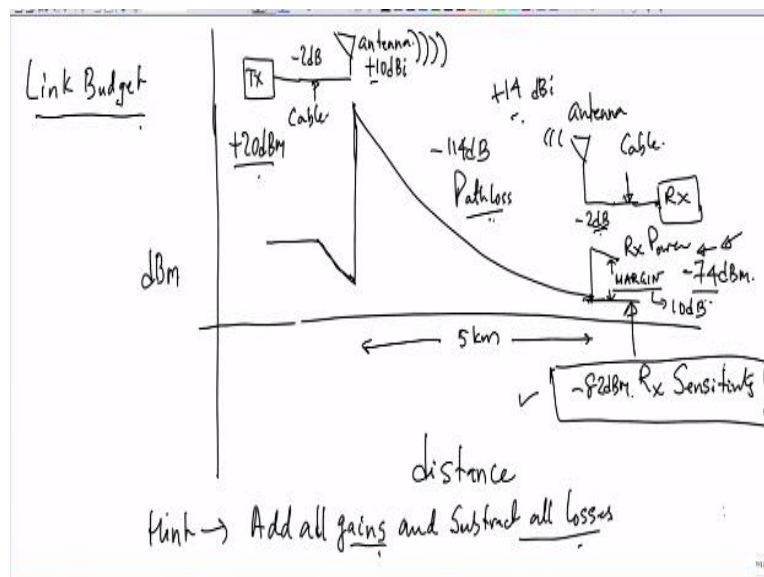 Link Budget
TX
-2dB
Cable
antenna
+10dBi
+20dBm
-114dB
Pathloss
+14 dBi
antenna
Cable.
Rx
-2dB
Rx Power
MARGIN
-74dBm.
10dB
dBm
5km
-82dBm. Rx Sensitivity
distance
Hint → Add all gains and Subtract all losses